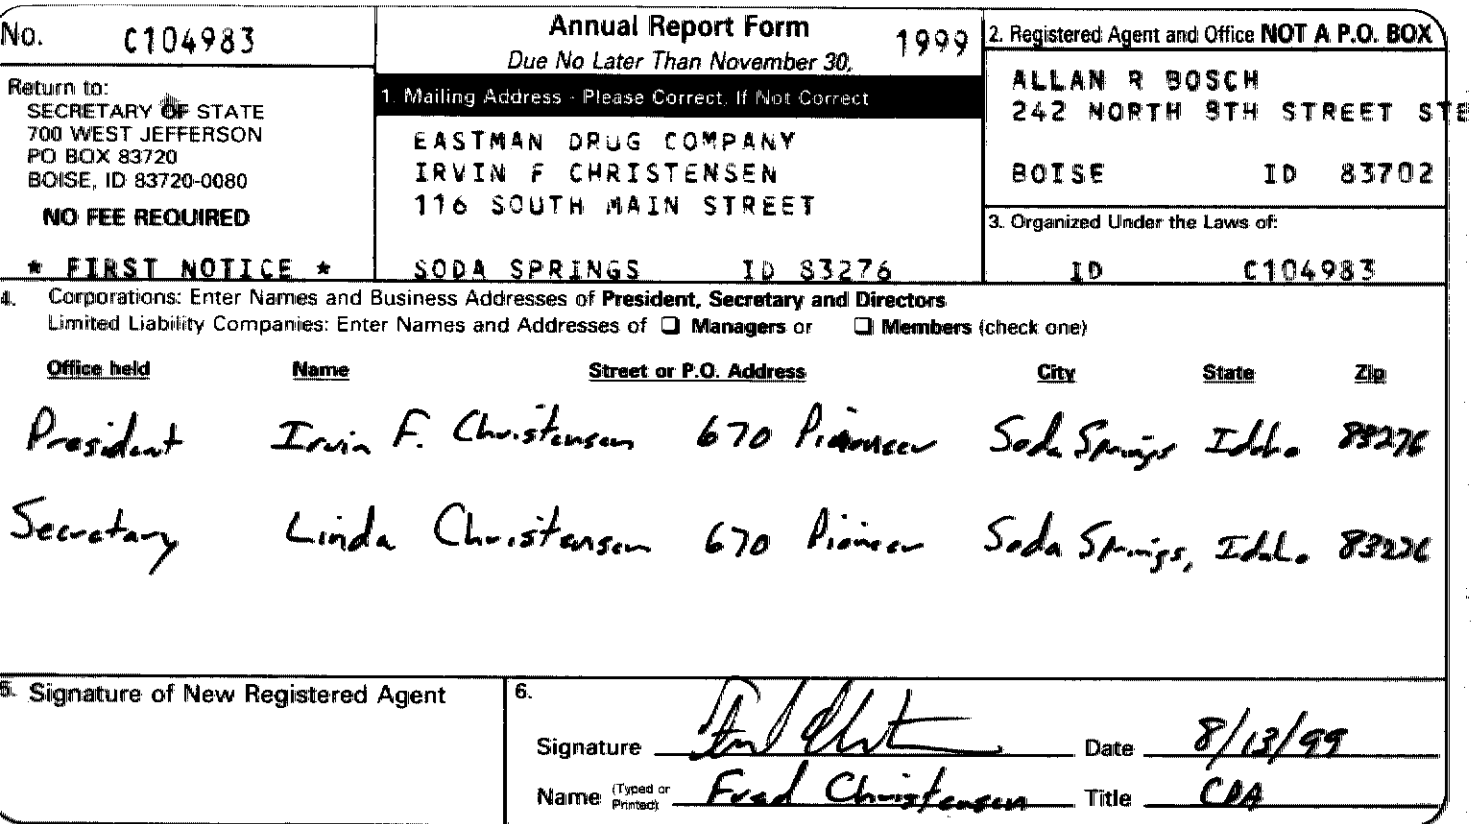 No. C104983
Return to:
SECRETARY OF STATE
700 WEST JEFFERSON
PO BOX 83720
BOISE, ID 83720-0080
NO FEE REQUIRED
* FIRST NOTICE *
Annual Report Form 1999
Due No Later Than November 30,
1. Mailing Address - Please Correct, If Not Correct
EASTMAN DRUG COMPANY
IRVIN F CHRISTENSEN
116 SOUTH MAIN STREET
SODA SPRINGS ID 83276
2. Registered Agent and Office NOT A P.O. BOX
ALLAN R BOSCH
242 NORTH 8TH STREET STE
BOISE ID 83702
3. Organized Under the Laws of:
ID C104983
4. Corporations: Enter Names and Business Addresses of President, Secretary and Directors
Limited Liability Companies: Enter Names and Addresses of ☐ Managers or ☐ Members (check one)
Office held Name Street or P.O. Address City State Zip
President Irvin F. Christensen 670 Pioneer Soda Springs Idaho 83276
Secretary Linda Christensen 670 Pioneer Soda Springs, Idaho 83276
5. Signature of New Registered Agent
6.
Signature Date 8/13/99
Name (Typed or Printed) Fred Christensen Title CPA